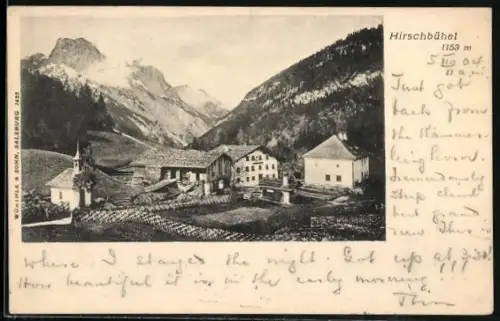 Hirschbühel
1153 m
5 VIII 04
11 a.m.
Just got
back from
the Kammer-
linghorn.
Tremendously
steep climb
but grand
view This is
where I stayed the night. Got up at 3.30!!!
How beautiful it is in the early morning.
WÜRTHLE & SOHN, SALZBURG 1425